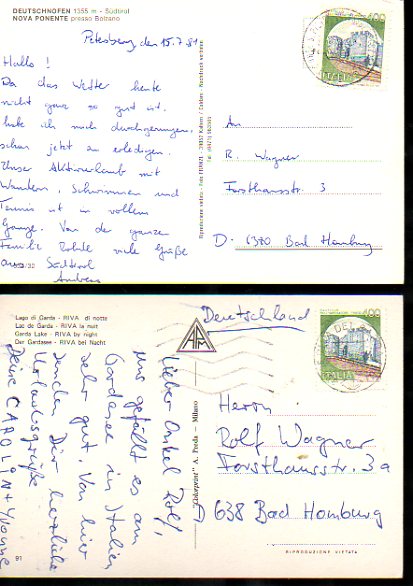 DEUTSCHNOFEN 1355 m - Südtirol
NOVA PONENTE presso Bolzano
Petersberg den 15.7.81
Hallo!
Da das Wetter heute
nicht ganz so gut ist,
habe ich mich durchgerungen,
schon jetzt zu erledigen.
Unser Aktivurlaub mit
Wandern, Schwimmen und
Tennis ist in vollem
Gange. Von der ganzen
Familie viele Grüße
aus Südtirol
Andreas
Riproduzione vietata - Nachdruck verboten
400
ITALIA
An
R. Wagner
Forsthausstr. 3
D-6380 Bad Homburg
Lago di Garda - RIVA di notte
Lac de Garde - RIVA la nuit
Garda Lake - RIVA by night
Der Gardasee - RIVA bei Nacht
Deutschland
400
ITALIA
Lieber Onkel Rolf,
uns gefällt es am
Gardasee in Italien
sehr gut. Von hier
senden Dir herzliche
Urlaubsgrüße
Deine CAROLIN + Yvonne
A. Preda - Milano
Herrn
Rolf Wagner
Forsthausstr. 3a
D 638 Bad Homburg
91
RIPRODUZIONE VIETATA